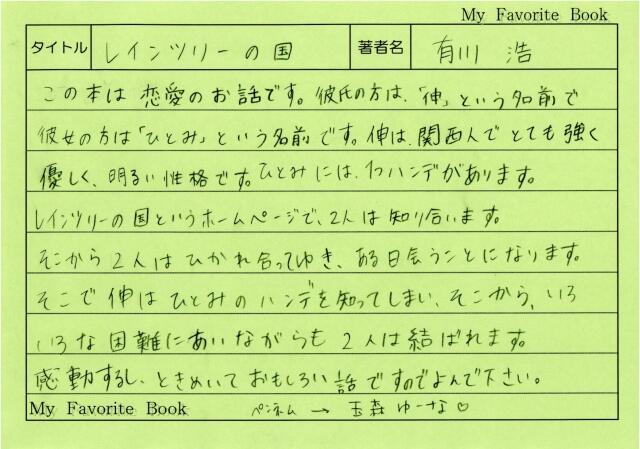 My Favorite Book
タイトル レインツリーの国 著者名 有川 浩
この本は恋愛のお話です。彼氏の方は、「伸」という名前で
彼女の方は「ひとみ」という名前です。伸は、関西人でとても強く
優しく、明るい性格です。ひとみには、1つハンデがあります。
レインツリーの国というホームページで、2人は知り合います。
そこから2人はひかれ合ってゆき、ある日会うことになります。
そこで伸はひとみのハンデを知ってしまい、そこから、いろ
いろな困難にあいながらも2人は結ばれます。
感動するし、ときめいておもしろい話ですのでよんで下さい。
My Favorite Book ペンネム → 玉森ゆーな♡